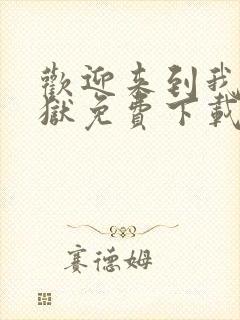 歡迎来到我
獄免費下載
賽德姆